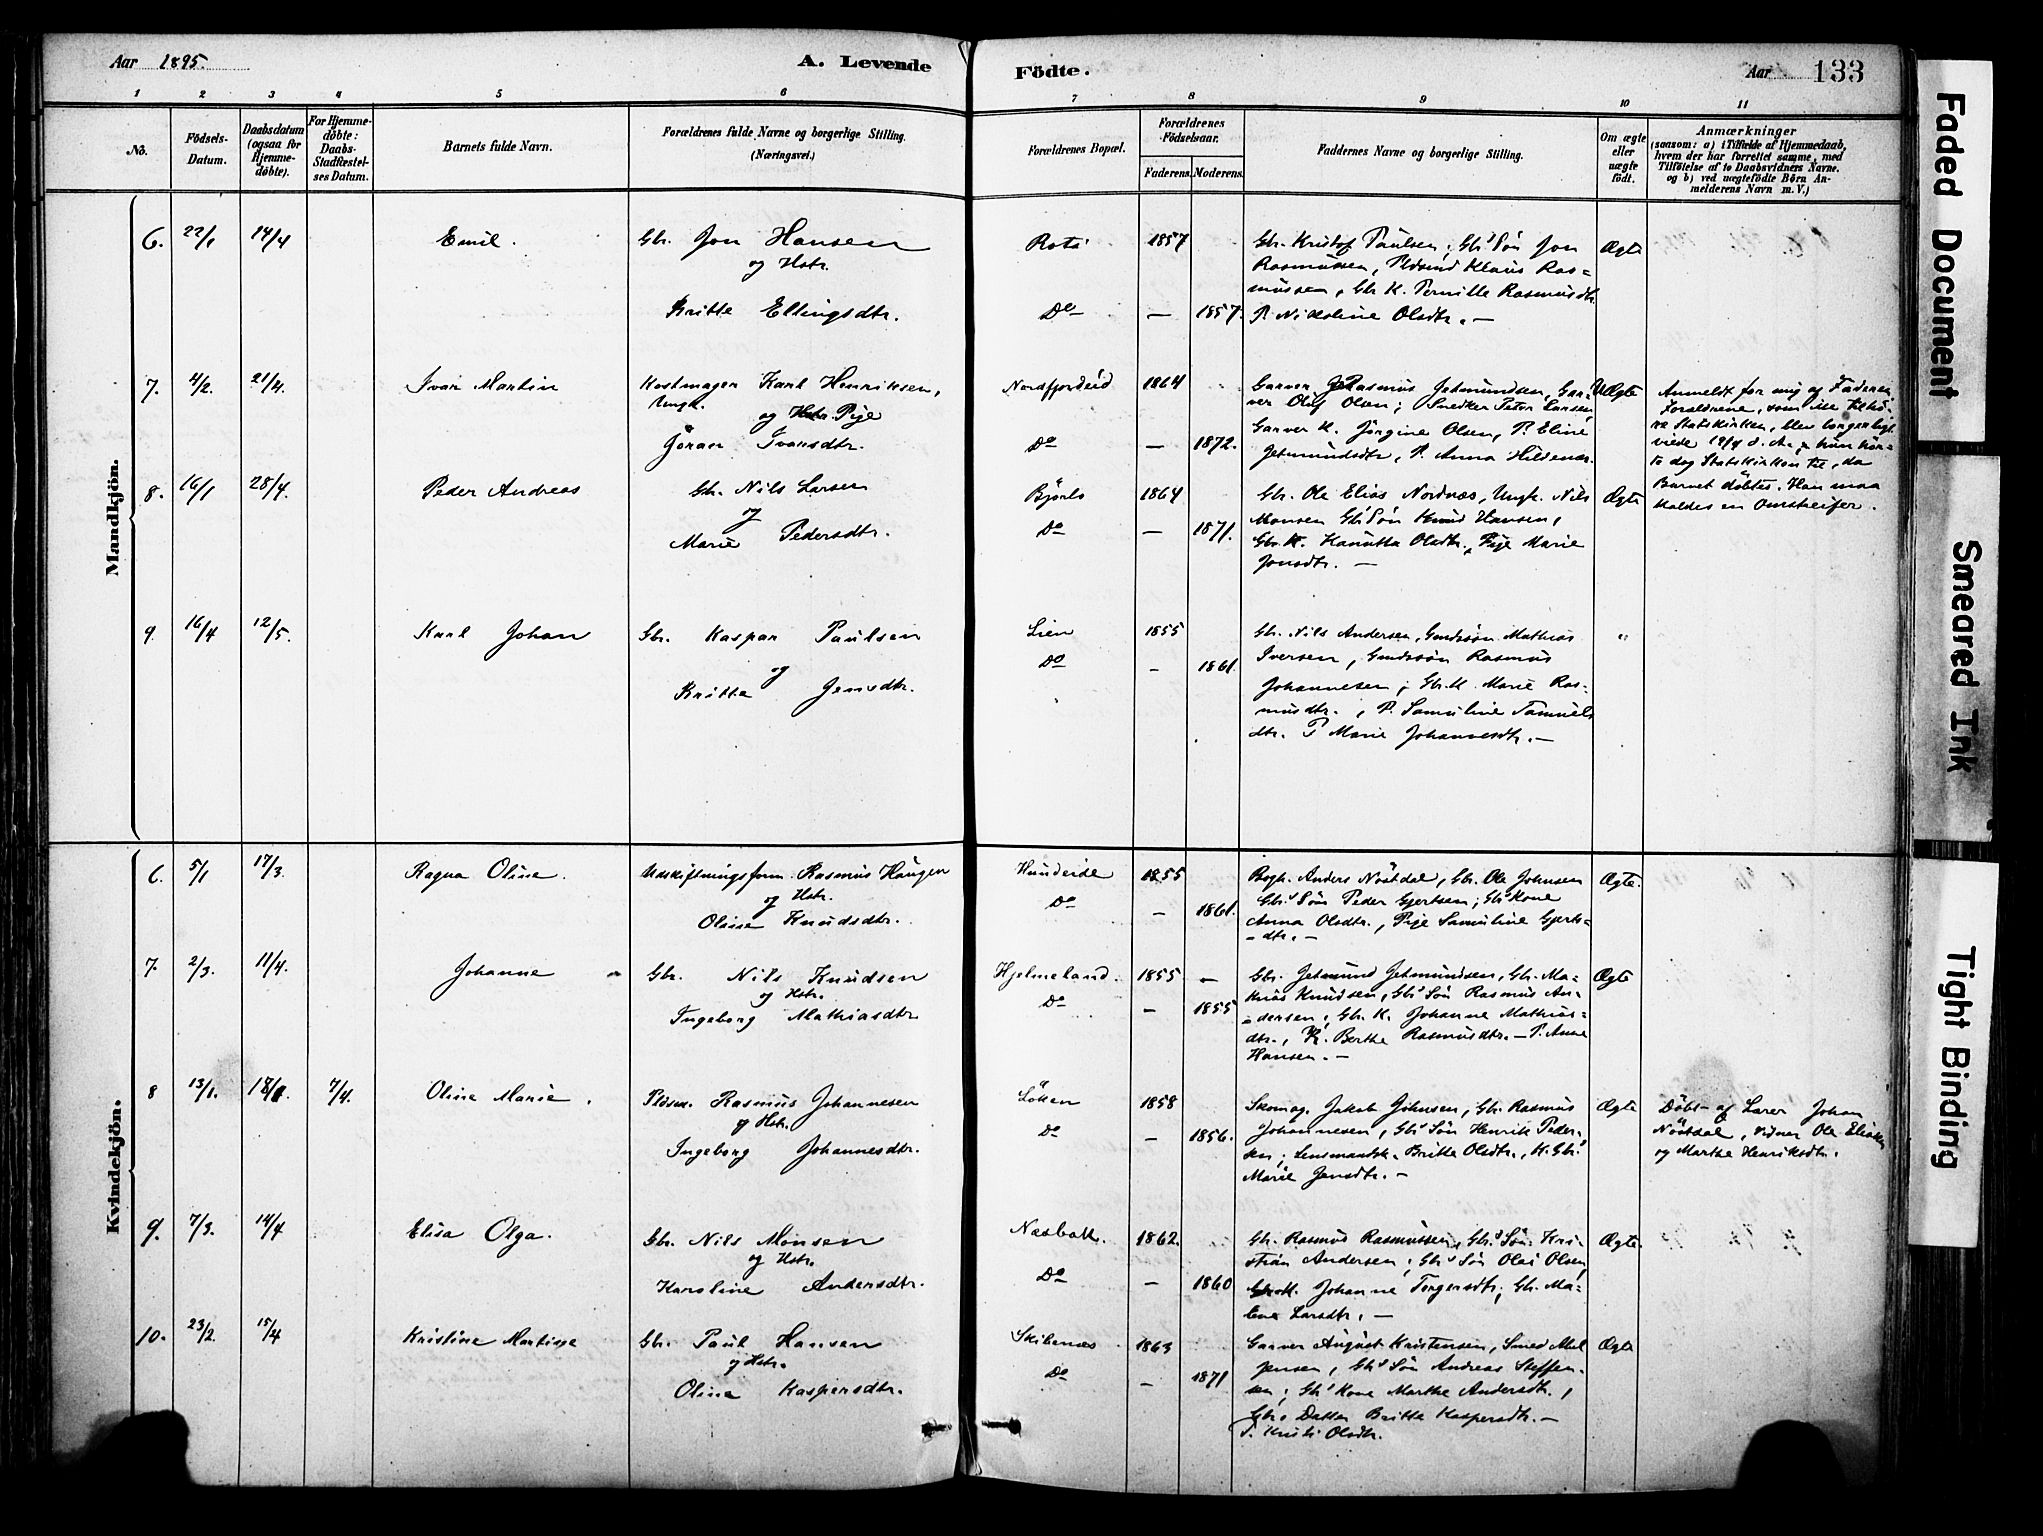 Aar 1895.
A. Levende
Födte.
Aar
133
1 2 3 4 5 6 7 8 9 10 11
No.
Födsels-
Datum.
Daabsdatum
(ogsaa for
Hjemme-
döbte).
For Hjemme-
döbte:
Daabs-
Stadfæstel-
ses Datum.
Barnets fulde Navn.
Forældrenes fulde Navne og borgerlige Stilling.
(Næringsvei.)
Forældrenes Bopæl.
Forældrenes
Födselsaar.
Faderens. Moderens.
Faddernes Navne og borgerlige Stilling.
Om ægte
eller
uægte
födt.
Anmærkninger
(saasom: a) i Tilfælde af Hjemmedaab,
hvem der har forrettet samme, med
Tilföielse af to Daabsvidners Navne.
og b) ved uægtefödte Börn An-
melderens Navn m. V.)
Mandkjön.
6. 22/1 14/4 Emil. Gbr. Jon Hansen
og Hstr.
Britte Ellingsdtr.
Rota 1857
Do — 1857.
Gbr. Kristof Paulsen; Gbs Søn Jon
Rasmussen, Pldsmd Klaus Ras=
mussen, Gbr. K. Pernille Rasmusdtr
P. Nikoline Olsdtr. —
Ægte
7. 4/2. 21/4. Ivar Martin Kostmager Karl Henriksen,
Ungk.
og Hstr. Pige
Jøran Ivarsdtr.
Nordfjordeid 1864
Do — 1872.
Garver Rasmus Jetmundsen, Gar-
ver Oluf Olsen; Snedker Peter Larsen
Garver K. Jørgine Olsen, P. Eline
Jetmundsdtr, P. Anna Hildenes.
Uægte
Anmeldt for mig af Faderen
Forældrene, som ikke tilhø-
re Statskirken, blev borgerligt
viede 19/4 d. A., hun hør-
te dog Statskirken til, da
Barnet døbtes. Han maa
kaldes en Omstreifer.
8. 16/1 28/4. Peder Andreas Gbr. Nils Larsen
og
Marie Pedersdtr.
Bjørlo 1864
Do — 1871.
Gbr. Ole Elias Nordnæs, Ungk. Nils
Monsen Gbs Søn Knud Hansen,
Gbr. K. Hanutta Olsdtr., Pige Marie
Jonsdtr. —
Ægte
9. 16/4 12/5. Karl Johan Gbr. Kaspar Paulsen
og
Britte Jensdtr.
Lien 1855
Do — 1861.
Gbr. Nils Andersen, Gmdssøn Mathias
Iversen, Gmdssøn Rasmus
Johannesen; Gbr. K. Marie Ras-
musdtr., P. Samuline Samuels
dtr. P Marie Johannesdtr. —
"
Kvindekjön.
6. 5/1 17/3. Ragna Oline. Udskiftningsform. Rasmus Haugen
og Hstr.
Oline Knudsdtr.
Hundeide 1855
Do — 1861.
Bogh. Anders Nøstdal, Gbr. Ole Johnsen
Gbs Søn Peder Gjertsen; Gbs Kone
Anna Olsdtr., Pige Samuline Gjerts-
-dtr. —
Ægte.
7. 2/3. 11/4. Johanne Gbr. Nils Knudsen
og Hstr.
Ingeborg Mathiasdtr.
Hjelmeland 1855 —
Do — 1855
Gbr. Jetmund Jetmundsen, Gbr. Ma-
knas Knudsen, Gbs Søn Rasmus An-
-dersen; Gbr. K. Johanne Mathias-
dtr., K. Berthe Rasmusdtr. — P. Anne
Hansen. —
Ægte
8 13/1. 18/1. 7/4. Oline Marie. Pldsm. Rasmus Johannesen
og Hstr.
Ingeborg Johannesdtr.
Løken 1858
Do — 1856.
Skomag. Jakob Johnsen, Gbr. Rasmus
Johannesen, Gbs Søn Henrik Peder-
sen; Lensmandsk. Britte Olsdtr., K. Gbs
Marie Jensdtr. —
Ægte
Døbt af Lærer Johan
Nøstdal, Vidner Ole Eliasen
og Marthe Henriksdtr.
9. 7/3. 14/4 Elisa Olga. Gbr. Nils Monsen
og Hstr.
Karoline Andersdtr.
Navebatt. 1862.
Do — 1860
Gbr. Rasmus Rasmussen, Gbs Søn Kri-
stian Andersen; Gbs Søn Olai Olsen,
Gbr. K. Johanne Torgersdtr; Gbr. Ma-
lene Larsdtr. —
Ægte.
10. 23/2. 15/4 Kristine Martine Gbr. Paul Hansen
og Hstr.
Oline Kaspersdtr.
Skibenæs 1863
Do — 1871
Garver August Kristensen, Smed
Jensen, Gbs Søn Andreas Steffen-
sen; Gbs Kone Marthe Andersdtr.,
Gbs Datter Britte Kaspersdtr. —
P. Kristi Olsdtr.
Ægte
Faded Document
Smeared Ink
Tight Binding